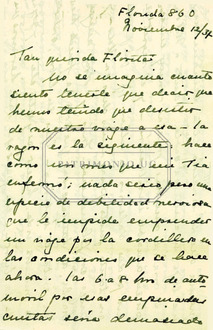 Florida 860
Noviembre 12/34
Tan querida Florita:
No se imagina cuanto
siento tenerle que decir que
hemos tenido que desistir
de nuestro viaje a esa - la
razon es la siguiente hace
como un mes que mi Tia
enfermó; nada serio pero una
especie de debilidad nerviosa
que le impide emprender
un viaje por la cordillera en
las condiciones que se hace
ahora. Las 6 a 8 hrs de auto
movil por esas empinadas
cuestas sería demasiado